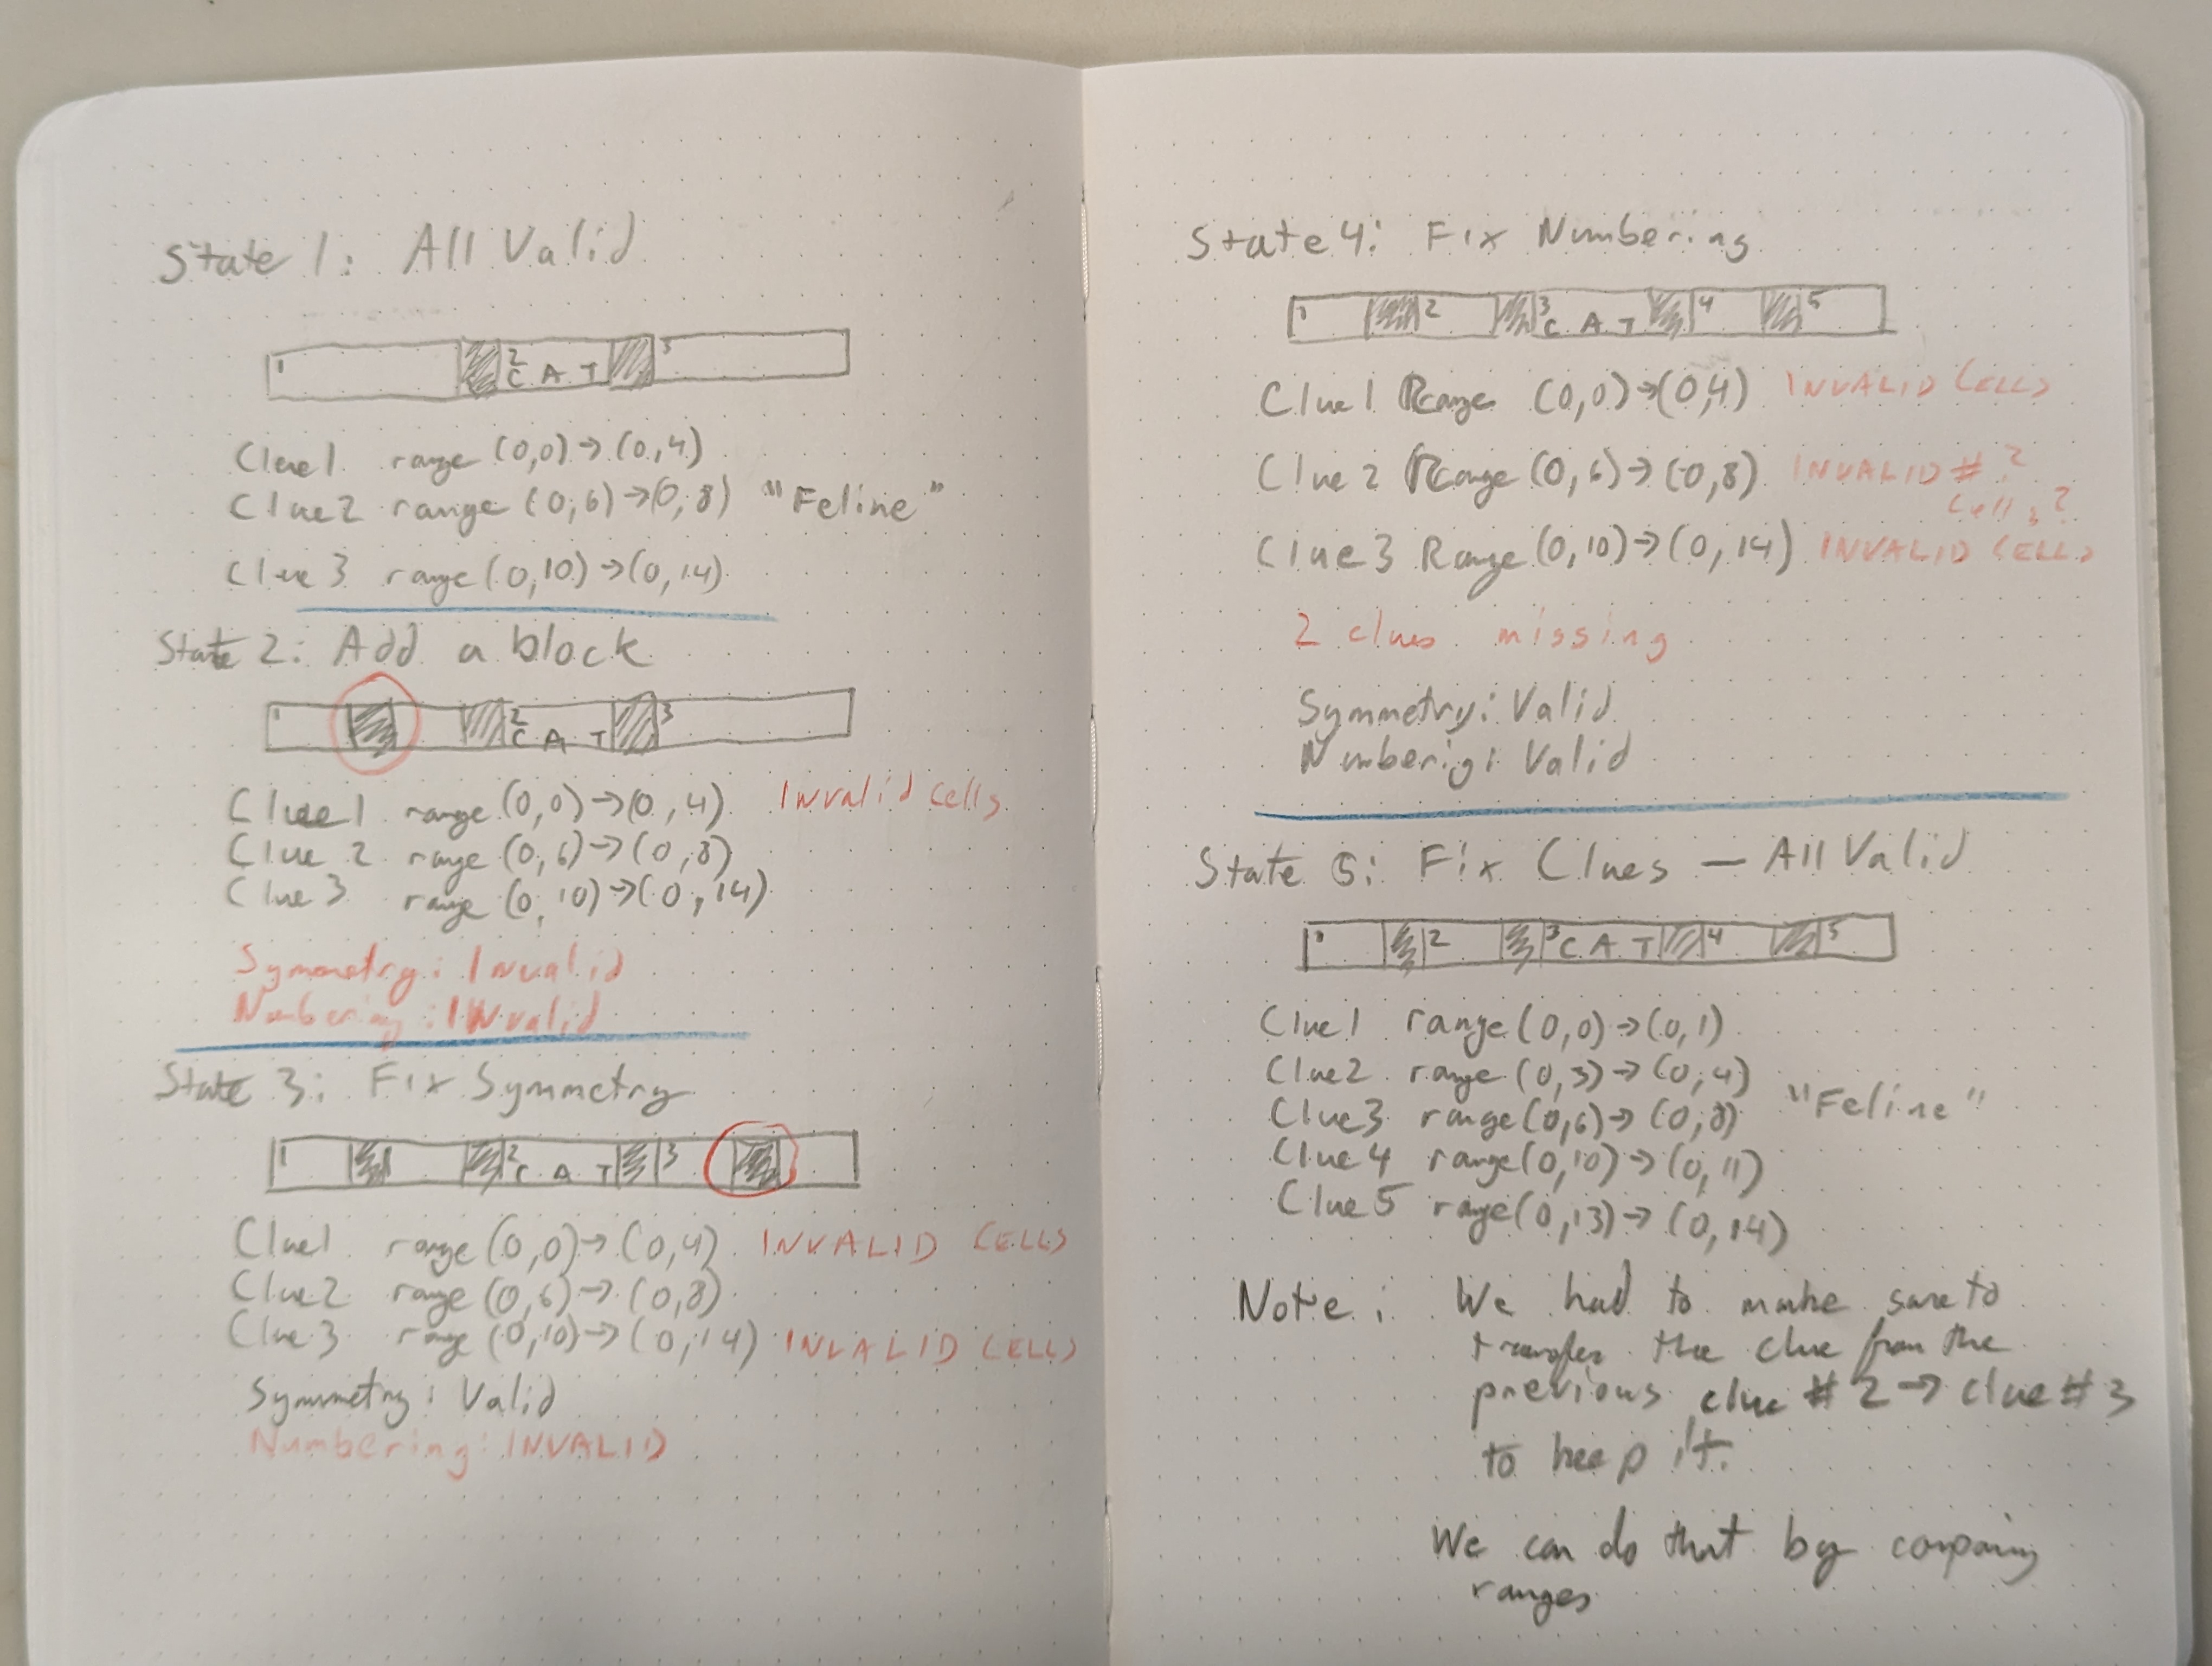 State 1: All Valid
1 2 CAT 3
Clue1 range (0,0)→(0,4)
Clue2 range (0,6)→(0,8) "Feline"
Clue 3 range (0,10)→(0,14)
State 2: Add a block
1 2 CAT 3
Clue1 range (0,0)→(0,4) Invalid Cells
Clue 2 range (0,6)→(0,8)
Clue 3 range (0,10)→(0,14)
Symmetry: Invalid
Numbering: INvalid
State 3: Fix Symmetry
1 2 CAT 3
Clue1 range (0,0)→(0,4) INVALID CELLS
Clue2 range (0,6)→(0,8)
Clue 3 range (0,10)→(0,14) INVALID CELLS
Symmetry: Valid
Numbering: INVALID
State 4: Fix Numbering
1 2 3 CAT 4 5
Clue1 Range (0,0)→(0,4) INVALID CELLS
Clue 2 Range (0,6)→(0,8) INVALID #?
Cells?
Clue 3 Range (0,10)→(0,14) INVALID CELLS
2 clues missing
Symmetry: Valid
Numberig: Valid
State 5: Fix Clues — All Valid
1 2 3 CAT 4 5
Clue1 range (0,0)→(0,1)
Clue2 range (0,3)→(0,4)
Clue3 range (0,6)→(0,8) "Feline"
Clue 4 range (0,10)→(0,11)
Clue 5 range (0,13)→(0,14)
Note: We had to make sure to
transfer the clue from the
previous clue #2→clue #3
to keep it.
We can do that by comparing
ranges